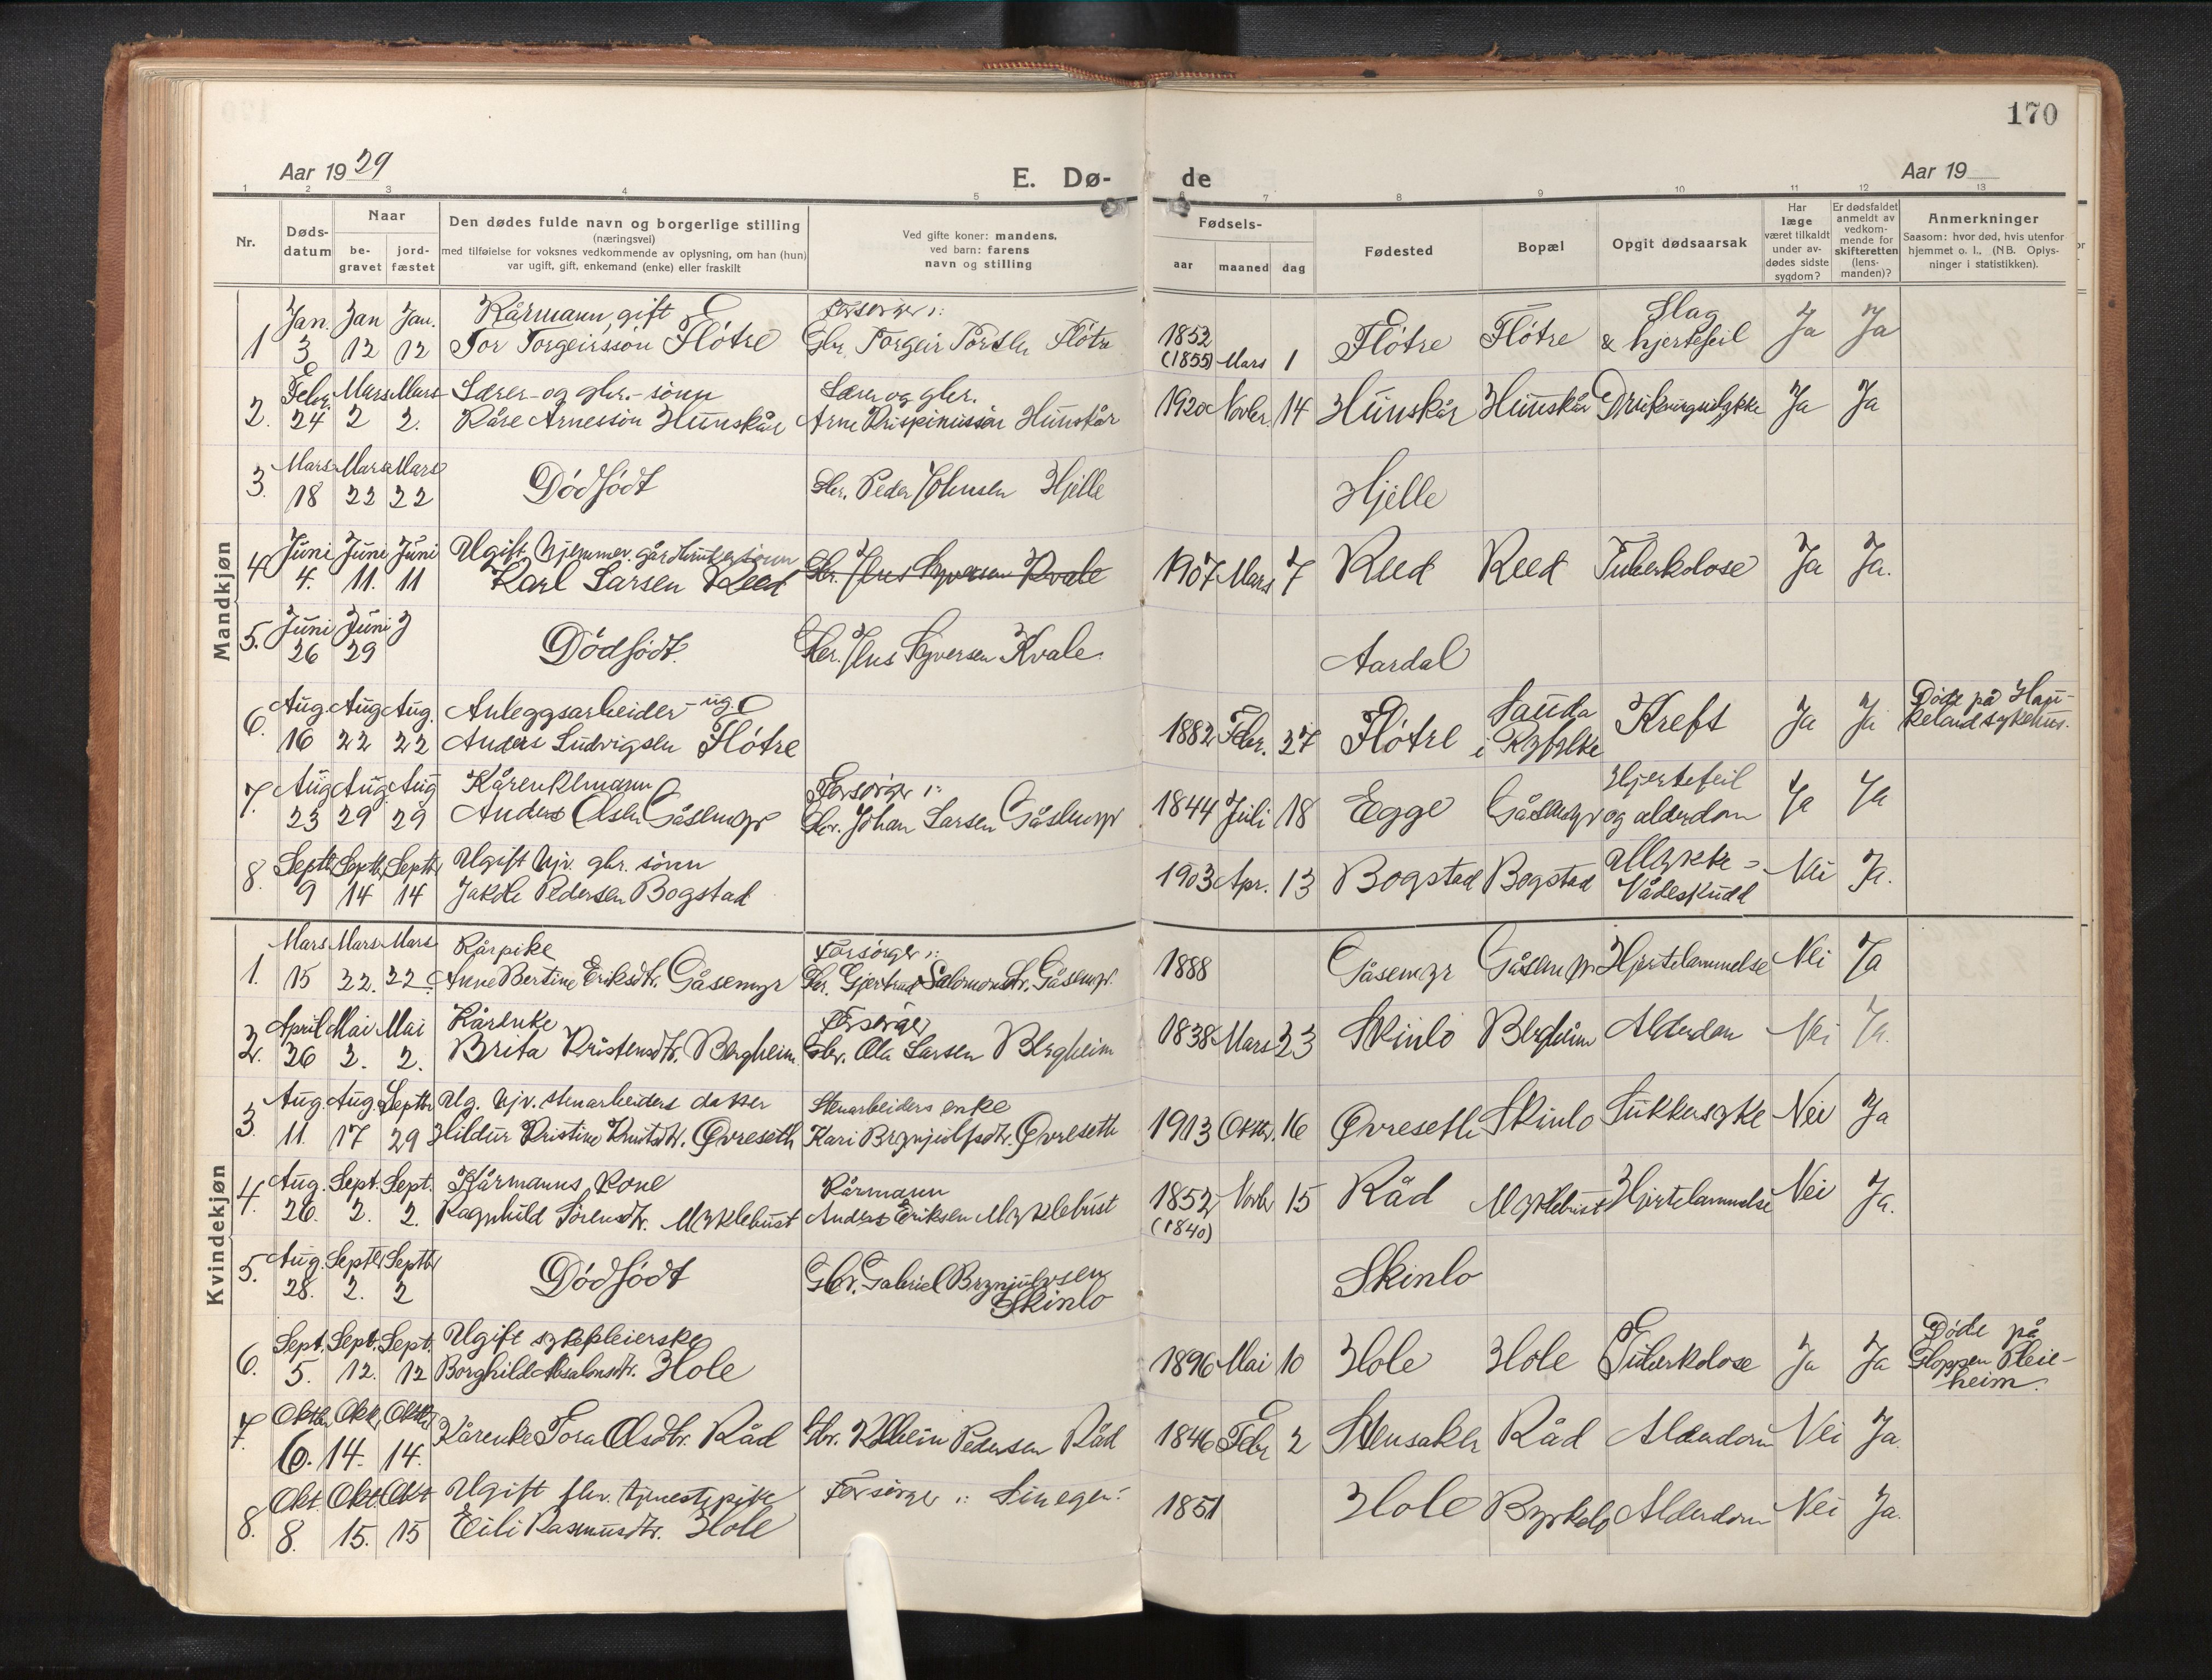 170
Aar 1929
E. Dø-
de
Aar 19
1 2 3 4 5 6 7 8 9 10 11 12 13
Nr.
Døds-
datum
Naar
be-
gravet
jord-
fæstet
Den dødes fulde navn og borgerlige stilling
(næringsvei)
med tilføielse for voksnes vedkommende av oplysning, om han (hun)
var ugift, gift, enkemand (enke) eller fraskilt
Ved gifte koner: mandens,
ved barn: farens
navn og stilling
Fødsels-
aar
maaned
dag
Fødested
Bopæl
Opgit dødsaarsak
Har
læge
været tilkaldt
under av-
dødes sidste
sygdom?
Er dødsfaldet
anmeldt av
vedkom-
mende for
skifteretten
(lens-
manden)?
Anmerkninger
Saasom: hvor død, hvis utenfor
hjemmet o. l., (NB. Oplys-
ninger i statistikken).
Mandkjøn
Jan. Jan Jan. Kårmann, gift Forsørger: Slag
1 3 12 12 Tor Torgeirsson Fløtre Gbr. Torgeir Torsen Fløtre 1852 (1855) Mars 1 Fløtre Fløtre & hjertefeil Ja Ja
Febr. Mars Mars Lærer- og gbr.- sønn Lærer og gbr.
2. 24 2 2. Kåre Arnesson Hunskår Arne Krispinusson Hunskår 1920 Novbr. 14 Hunskår Hunskår Drukningsulykke Ja Ja
Mars Mars Mars
3. 18 22 22 Dødfødt Gbr. Peder Johnsen Hjelle Hjelle
Juni Juni Juni Ugift, hjemmev. gårdbrukersønn
4 4. 11. 11 Karl Larsen Reed Gbr. Jens Syversen Kvale 1907 Mars 7 Reed Reed Tuberkolose Ja Ja.
Juni Juni J
5. 26 29 Dødfødt. Gbr. Jens Syversen Kvale. Aardal
Aug. Aug Aug. Anleggsarbeider - ug. Sauda Døde på Hau-
6. 16 22 22 Anders Ludvigsen Fløtre 1882 Febr. 27 Fløtre i Ryfylke Kreft Ja Ja kelandsykehus.
Aug Aug. Aug Kårenkemann Forsørger: Hjertefeil
7. 23 29 29 Anders Olsen Gåsemyr Gbr. Johan Larsen Gåsemyr 1844 Juli 18 Egge Gåsemyr og alderdom Ja Ja
Septbr Septbr Septbr Ugift hjv. gbr. sønn Ulykke -
8. 9 14 14 Jakob Pedersen Bogstad 1903 Apr. 13 Bogstad Bogstad Vådeskudd Nei Ja.
Kvindekjøn
Mars Mars Mars Kårpike Forsørger:
1. 15 22. 22. Anne Bertine Eriksdtr. Gåsemyr Gbr. Gjertrud Salomonsdtr. Gåsemyr. 1888 Gåsemyr Gåsemyr Hjertelammelse Nei Ja
April Mai Mai Kårenke Forsørger
2. 26 2. 2. Brita Kristensdtr. Bergheim Gbr. Ola Larsen Bergheim 1838 Mars 23 Skinlo Bergheim Alderdom Nei Ja.
Aug. Aug. Septbr Ug. hjv. stenarbeiders datter Stenarbeiders enke
3. 11. 17 29 Hildur Kristine Knutsdtr. Øvreseth Kari Brynjulfsdtr. Øvreseth 1913 Oktbr. 16 Øvreseth Skinlo Sukkersyke Nei Ja
Aug. Sept. Sept. Kårmanns kone Kårmann
4. 26. 2. 2. Ragnhild Sørensdtr. Myklebust Anders Eriksen Myklebust 1852 (1840) Novbr 15 Råd Myklebust Hjertelammelse Nei Ja.
Aug. Septbr Septbr
5. 28. 2. 2 Dødfødt Gbr. Gabriel Brynjulvsen
Skinlo Skinlo
Sept. Sept. Sept. Ugift sykepleierske Døde på
6. 5. 12. 12 Borghild Absalonsdtr. Hole 1896 Mai 10 Hole Hole Tuberkolose Ja Ja Gloppen Pleie-
heim.
Oktbr. Okt. Oktbr
7. 6. 14. 14. Kårenke Tora Olsdtr. Råd Gbr. Kolbein Pedersen Råd 1846 Febr 2 Stensaker Råd Alderdom Nei Ja.
Okt. Okt. Okt Ugift fhv. tjenestepike Forsørger: Sin egen.
8. 8. 15. 15 Eili Rasmusdtr. Hole 1851 Hole Byrkelo Alderdom Nei Ja.